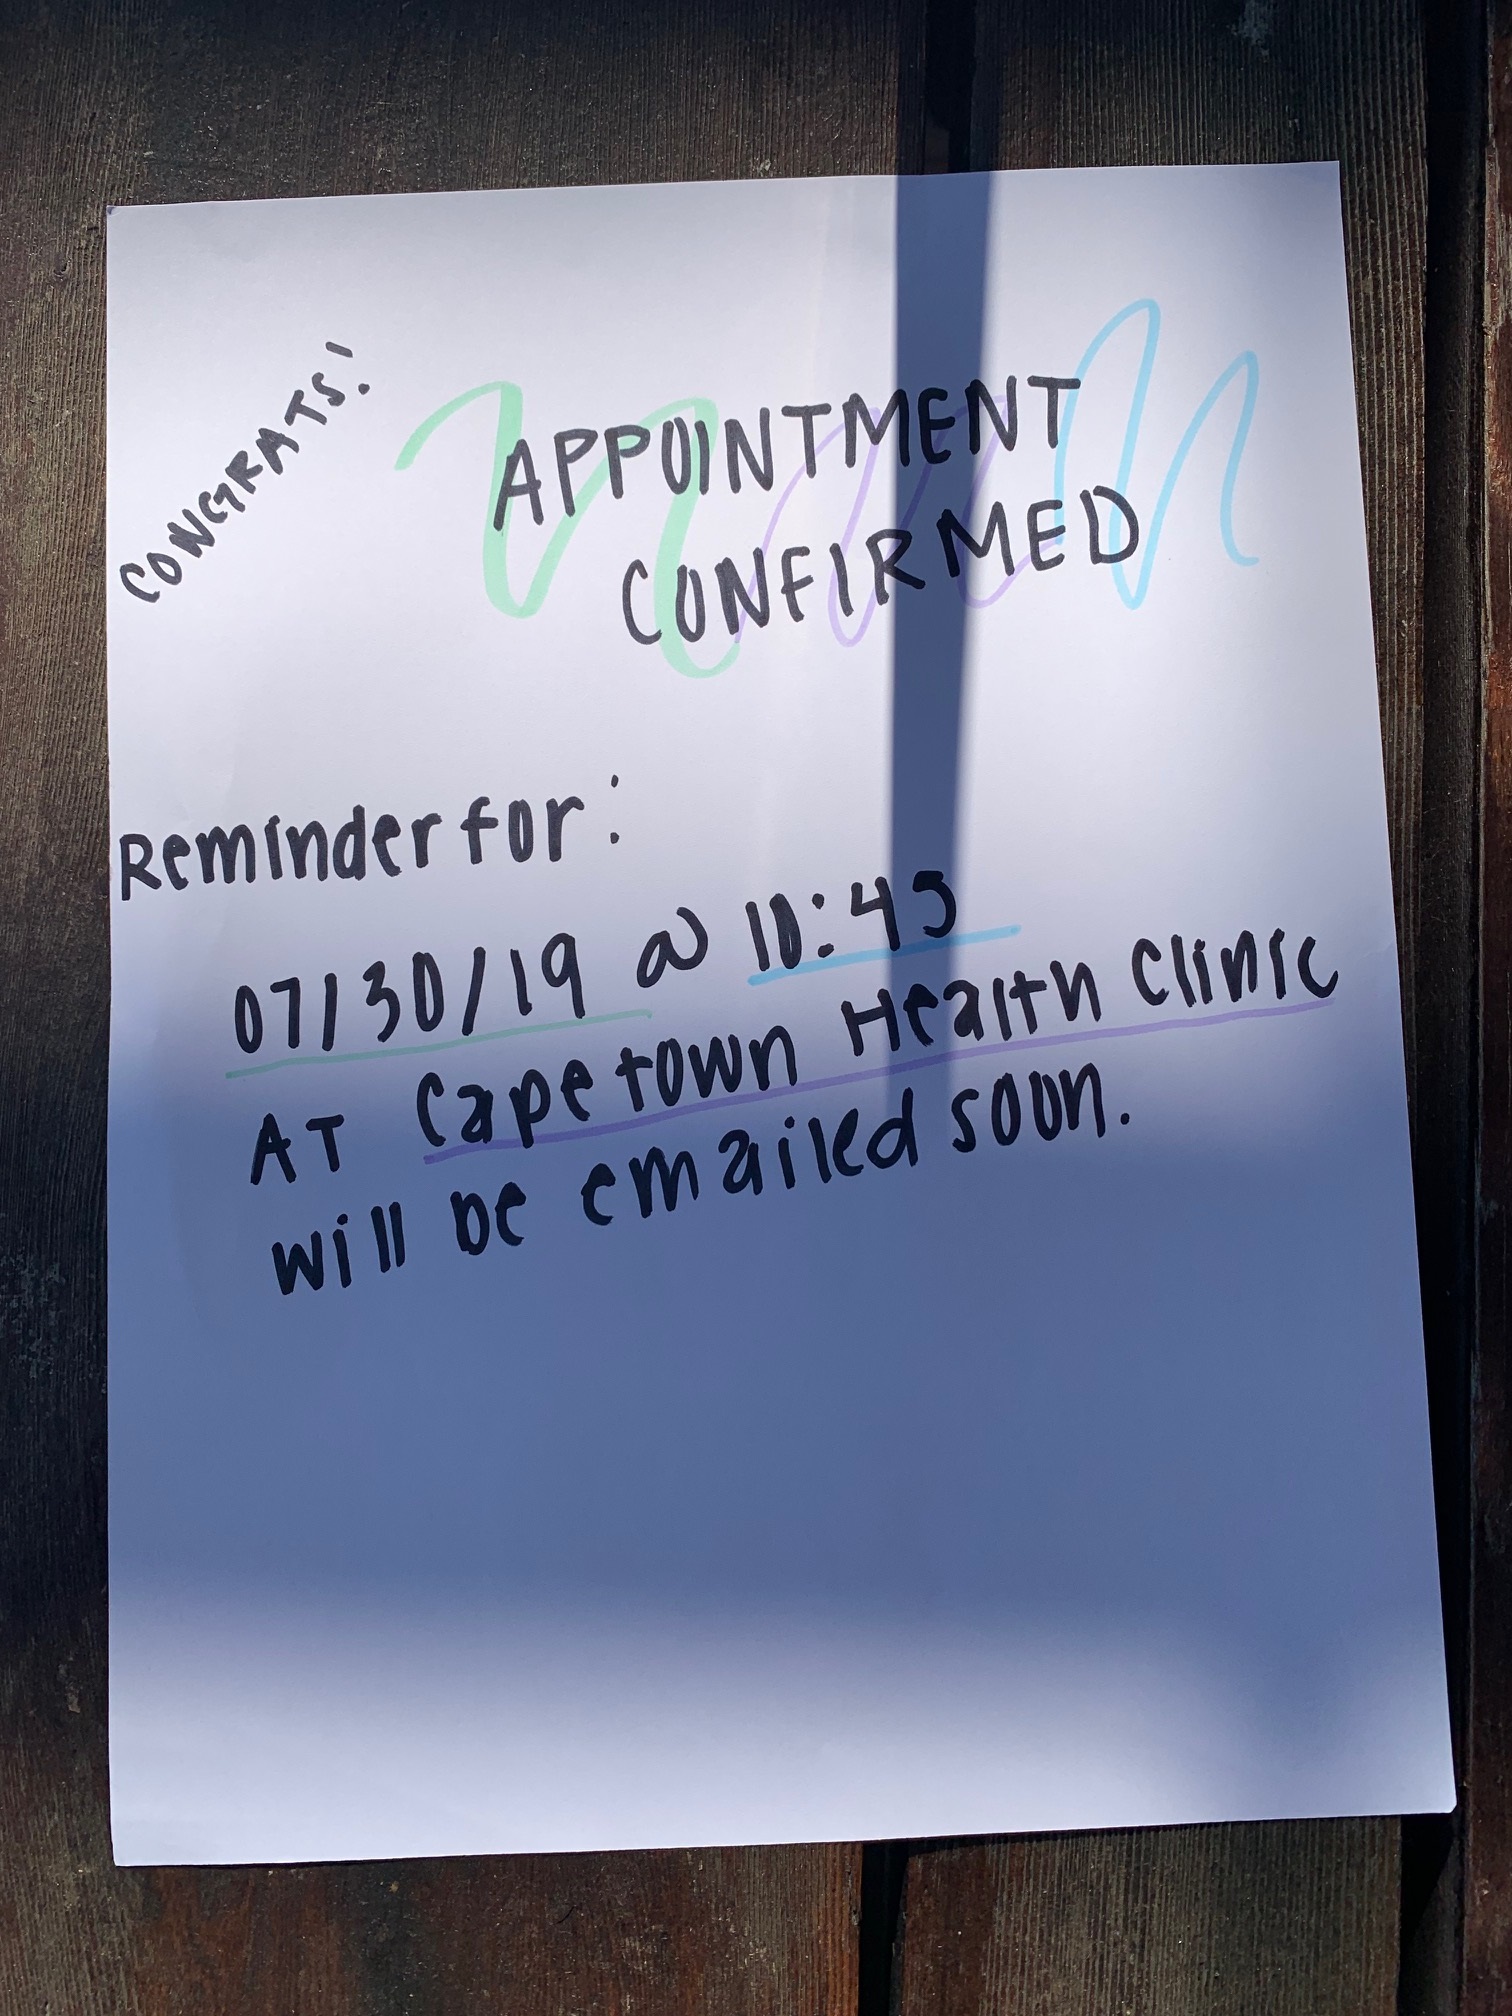 CONGRATS!
APPOINTMENT
CONFIRMED
Reminder for:
07/30/19 @ 10:45
AT Capetown Health Clinic
will be emailed soon.